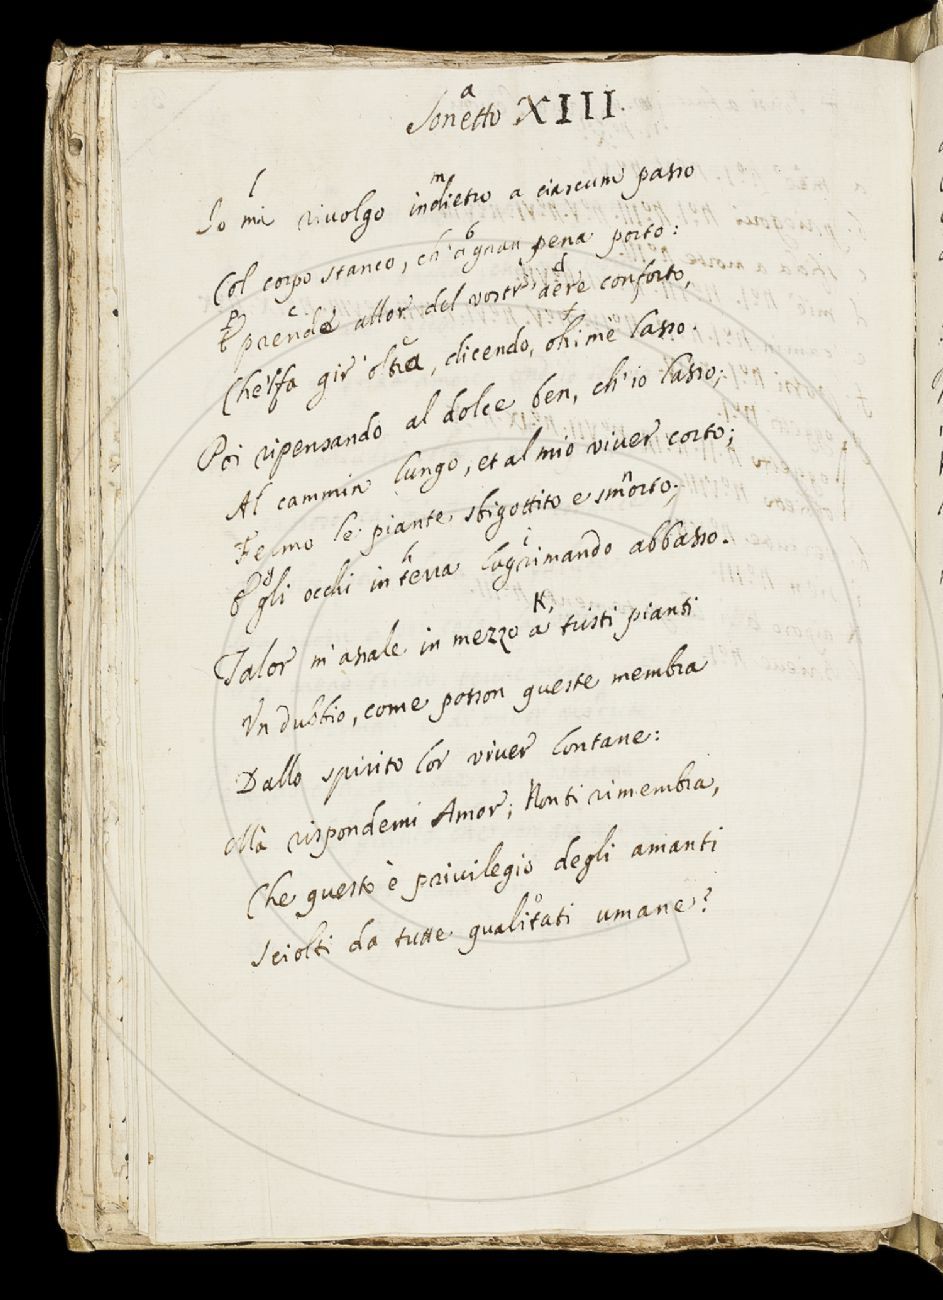 Sonetto XIII.
Io mi rivolgo indietro a ciascum passo
Col corpo stanco, ch'a gran pena porto:
E prendo allor del vostr' aere conforto,
Che'l fa gir oltra, dicendo, ohimè lasso.
Poi ripensando al dolce ben, ch'io lasso;
Al cammin lungo, et al mio viver corto;
Fermo le piante sbigottito e smorto;
E gli occhi in terra lagrimando abbasso.
Talor m'assale in mezzo a' tristi pianti
Un dubbio, come posson queste membra
Dallo spirito lor viver lontane:
Mà rispondemi Amor; Non ti rimembra,
Che questo è privilegio degli amanti
Sciolti da tutte qualitati umane?